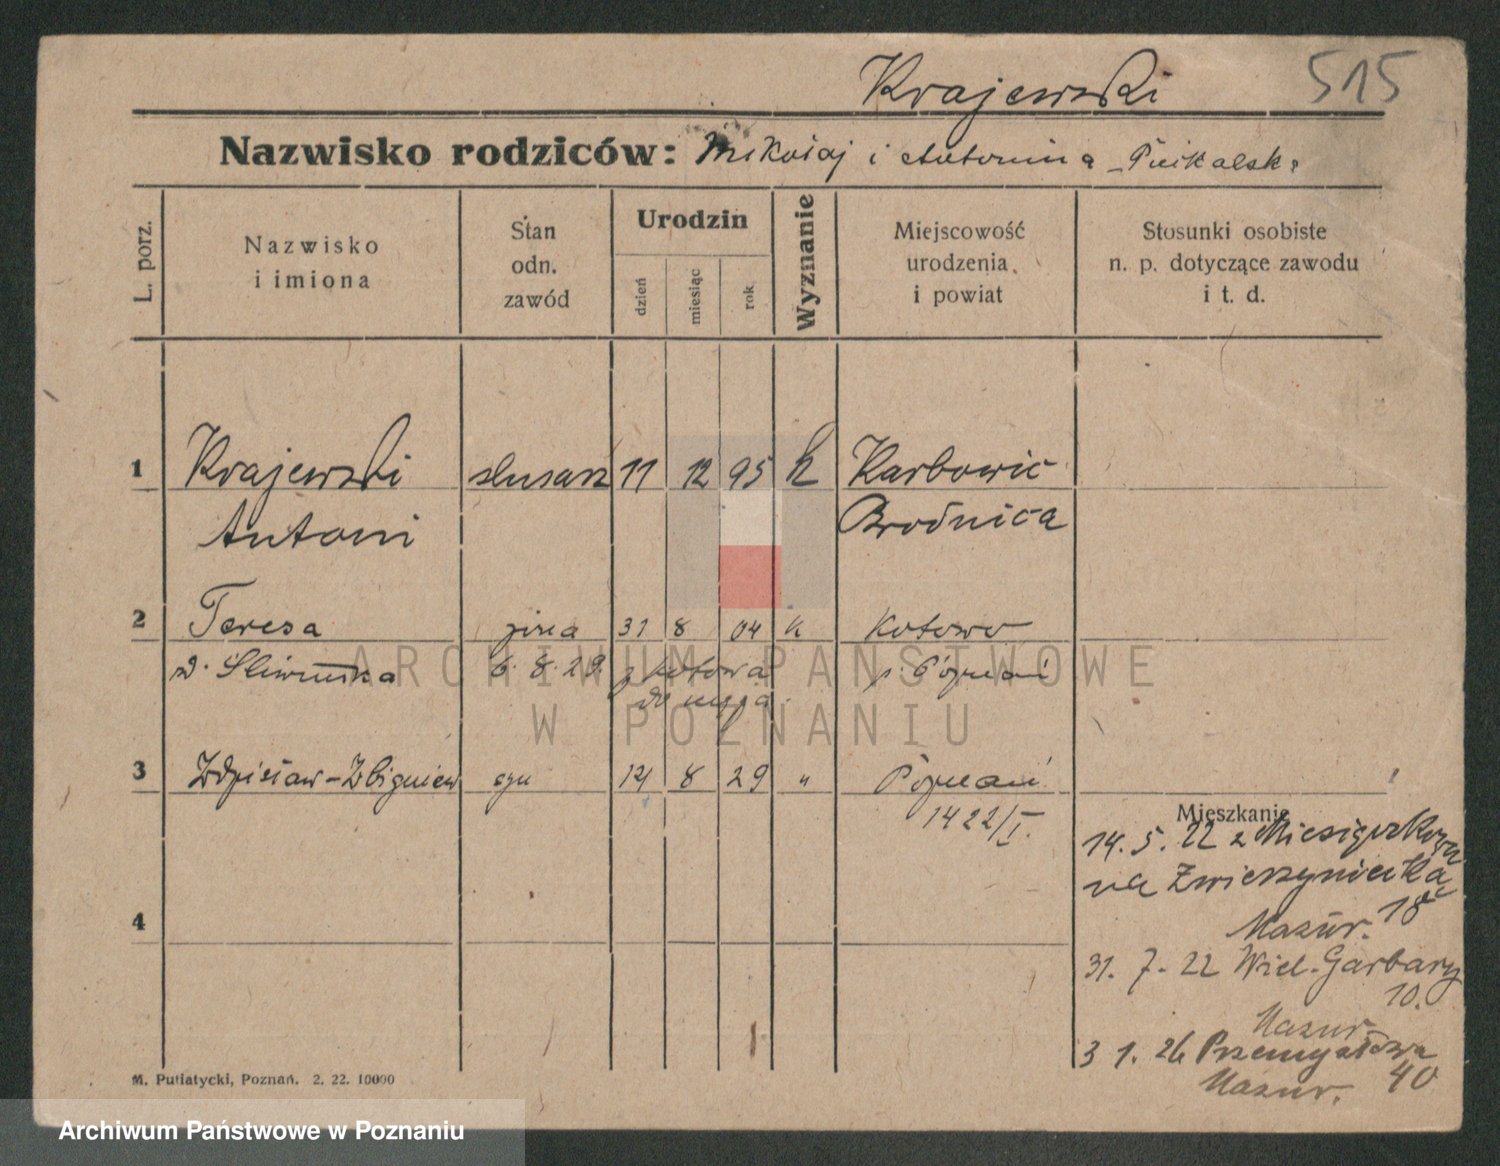 Krajewski 515
Nazwisko rodziców: Mikołaj i Antonina
L. porz.
Nazwisko
i imiona
Stan
odn.
zawód
Urodzin
dzień
miesiąc
rok
Wyznanie
Miejscowość
urodzenia
i powiat
Stosunki osobiste
n. p. dotyczące zawodu
i t. d.
1 Krajewski ślusarz 11 12 95 k Karbowic
Antoni Brodnica
2 Teresa żona 31 8 04 k Kotowo
6.8.29 z Kotowa p. Poznań
do męża
3 Zdzisław-Zbigniew syn 14 8 29 " Poznań
1422/I.
Mieszkanie
14. 5. 22 z
na Zwierzyniecką
Mazur. 18
31. 7. 22 Wiel. Garbary
10.
Mazur.
3 1. 26 Przemysłowa
Mazur. 40
4
M. Putiatycki, Poznań. 2. 22. 10000
ARCHIWUM PAŃSTWOWE
W POZNANIU
Archiwum Państwowe w Poznaniu